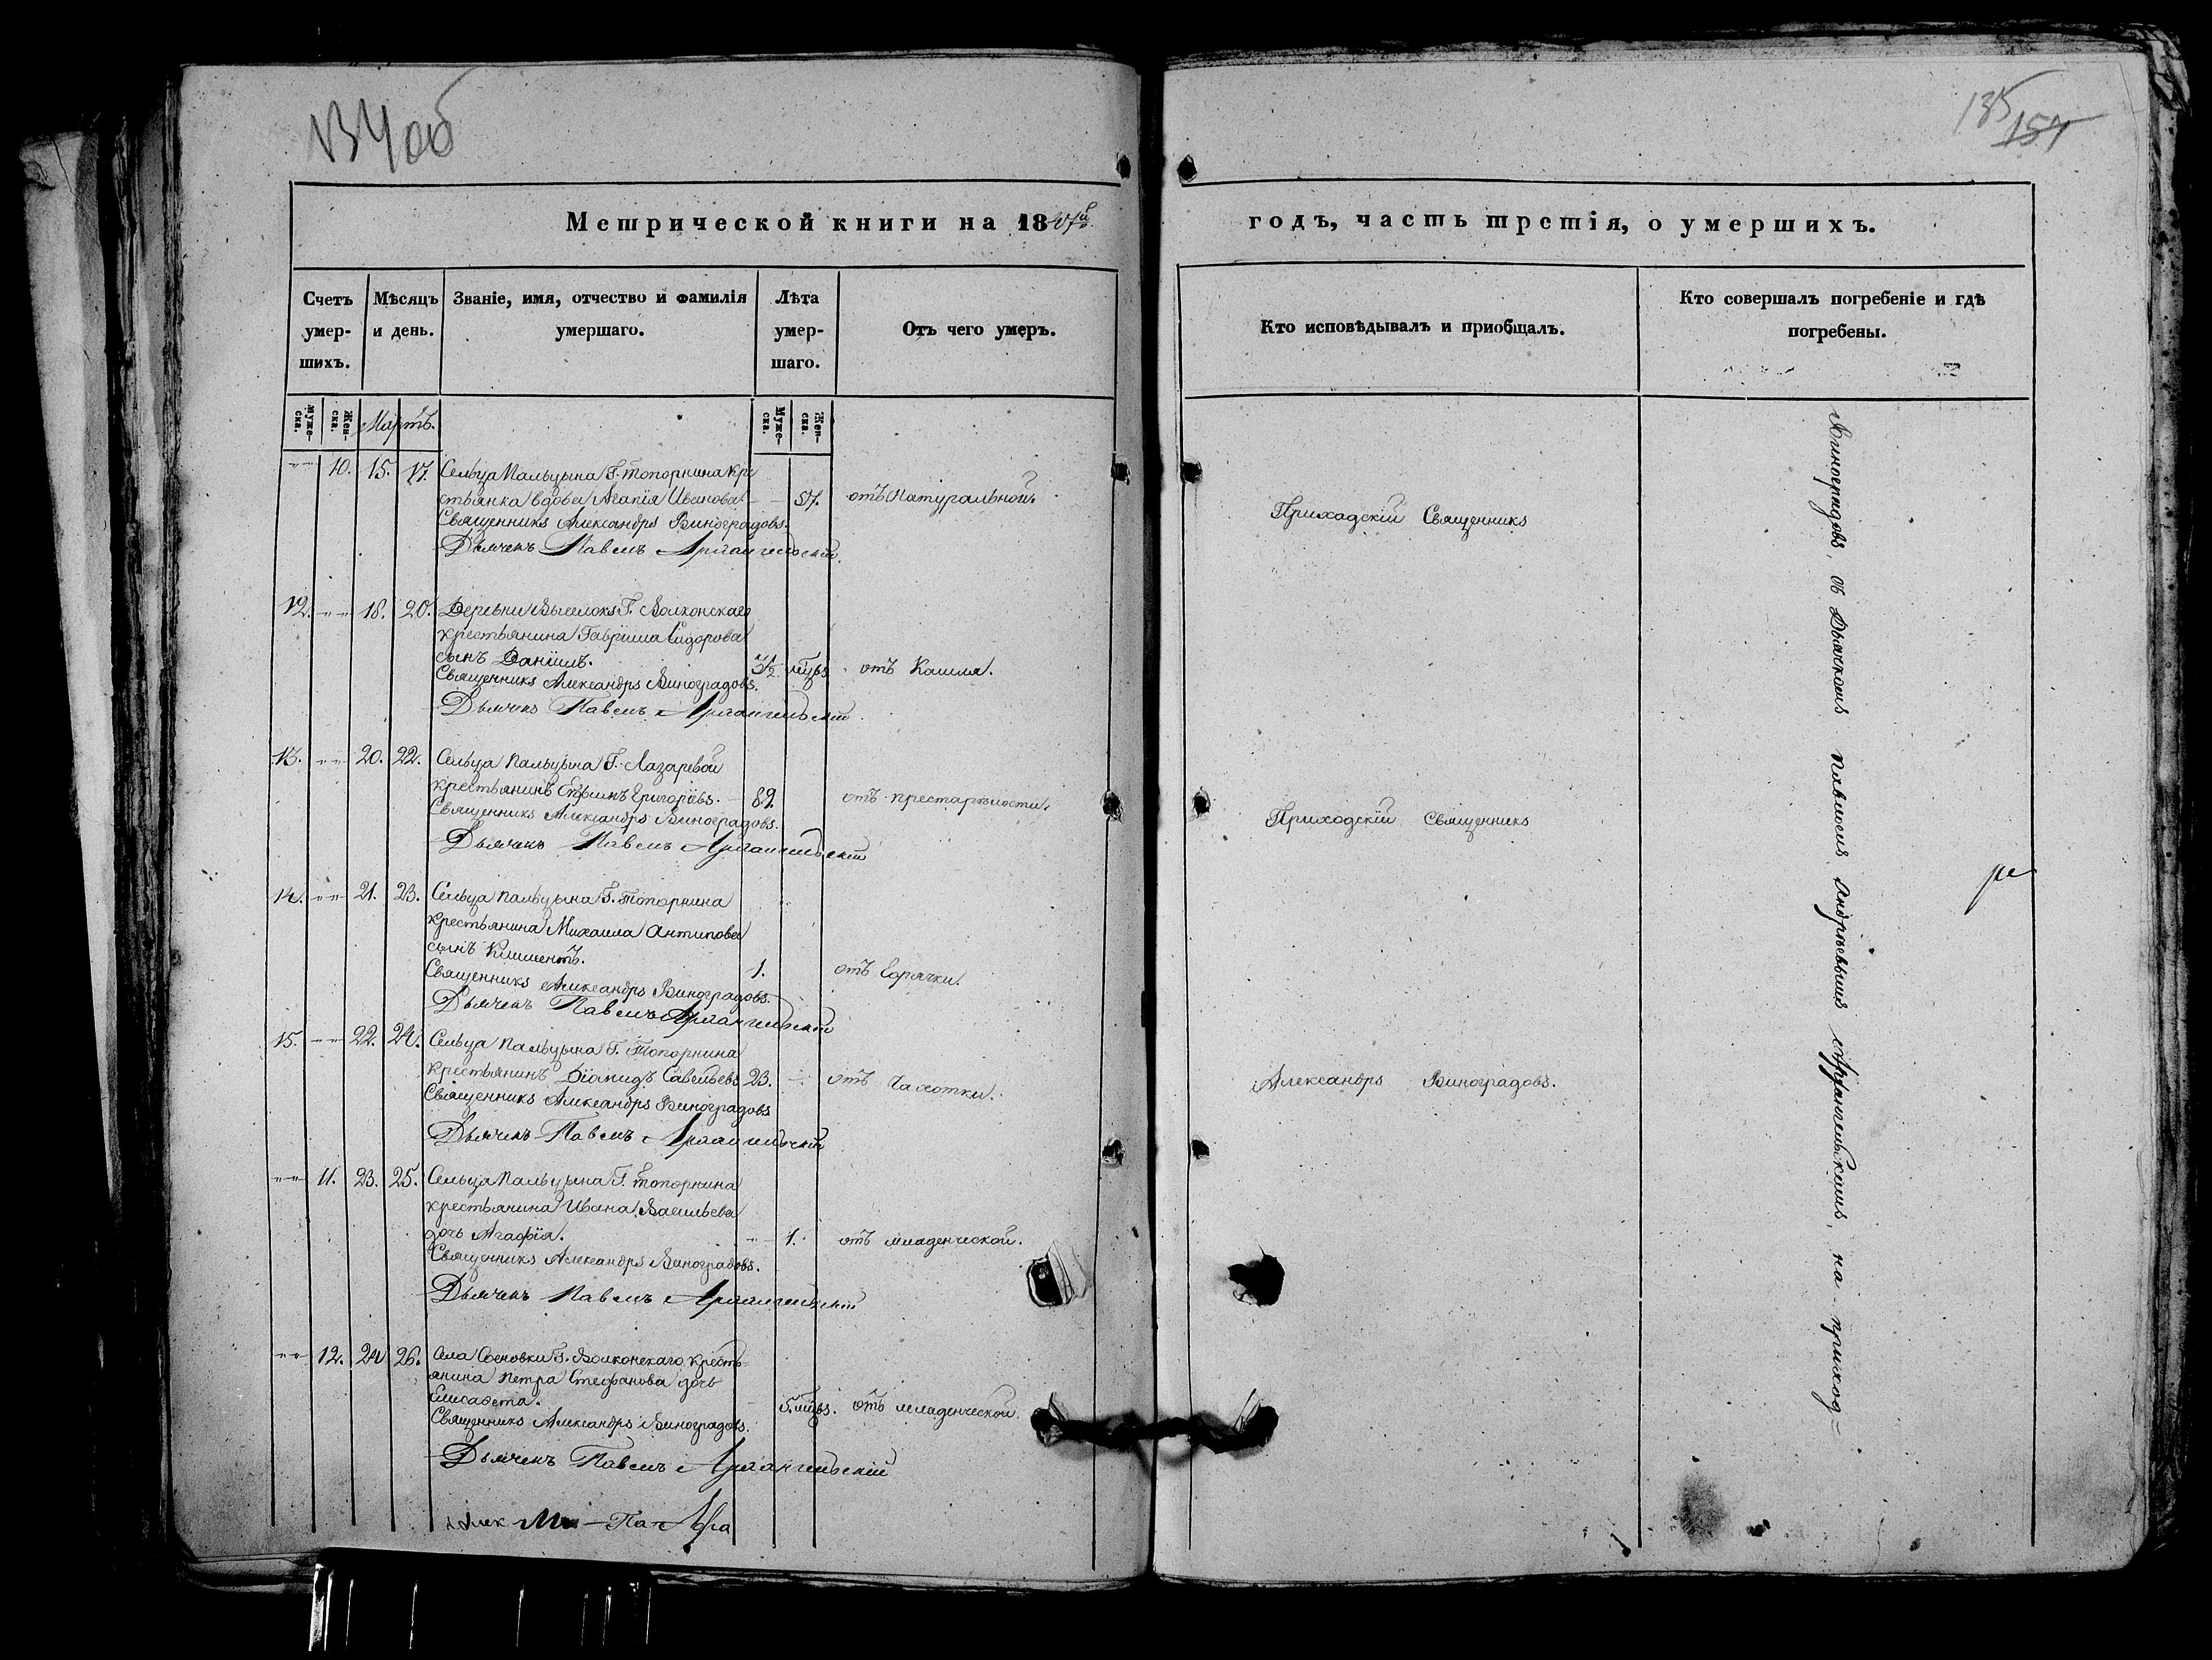 134об
135
157
Метрической книги на 1847й
годъ, часть третія, о умершихъ.
Счетъ умер-шихъ.
Мѣсяцъ и день.
Званіе, имя, отчество и фамилія умершаго.
Лѣта умер-шаго.
Отъ чего умеръ.
Кто исповѣдывалъ и приобщалъ.
Кто совершалъ погребеніе и гдѣ погребены.
Муже-ска. Жен-ска. Мартъ. Муже-ска. Жен-ска.
10. 15. 17. Сельца Пальцына Г. Топорнина кре
стьянка вдова Агапія Иванова. 57. отъ натуральной.
Священникъ Александръ Виноградовъ.
Дьячекъ Павелъ Архангельскій
12. 18. 20. Деревни Выселокъ Г. Волконскаго
крестьянина Гавріила Сидорова
сынъ Даніилъ. 3½ мѣцъ отъ Кашля.
Священникъ Александръ Виноградовъ.
Дьячекъ Павелъ Архангельскій
13. 20. 22. Сельца Пальцына Г. Лазаревой
крестьянинъ Григорьевъ. 89. отъ престарѣлости.
Священникъ Александръ Виноградовъ.
Дьячекъ Павелъ Архангельскій
14. 21. 23. Сельца Пальцына Г. Топорнина
крестьянина Михаила Антипова
сынъ Климентъ. 1. отъ Горячки.
Священникъ Александръ Виноградовъ.
Дьячекъ Павелъ Архангельскій
15. 22. 24. Сельца Пальцына Г. Топорнина
крестьянинъ Діомидъ Савельевъ 23. отъ Чахотки.
Священникъ Александръ Виноградовъ
Дьячекъ Павелъ Архангельскій
11. 23. 25. Сельца Пальцына Г. Топорнина
крестьянина Ивана Васильева
дочь Агафія. 1. отъ младенческой.
Священникъ Александръ Виноградовъ.
Дьячекъ Павелъ Архангельскій
12. 24 26. Села Сосновки Г. Волконскаго кресть-
янина Петра Стефанова дочь
Елисавета. 5. мѣцъ. отъ младенческой.
Священникъ Александръ Виноградовъ.
Дьячекъ Павелъ Архангельскій
Приходскій Священникъ
Приходскій Священникъ
Александръ Виноградовъ.
Виноградовъ, съ Дьячкомъ Павломъ Андрѣевымъ Архангельскимъ, на приход-